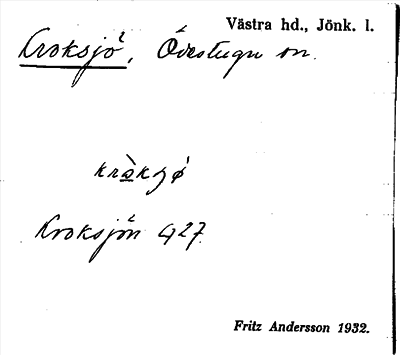 Västra hd., Jönk. l.
Kroksjö, Övestugu sn.
kràksjø
Kroksjön G27.
Fritz Andersson 1932.